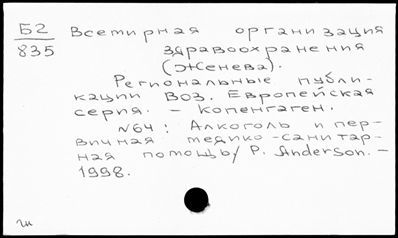 Б2
835
Всемирная организация
здравоохранения
(Женева).
Региональные публи-
кации ВОЗ. Европейская
серия. - Копенгаген.
№64: Алкоголь и пер-
вичная медико-санитар-
ная помощь/ P. Anderson. -
1998.